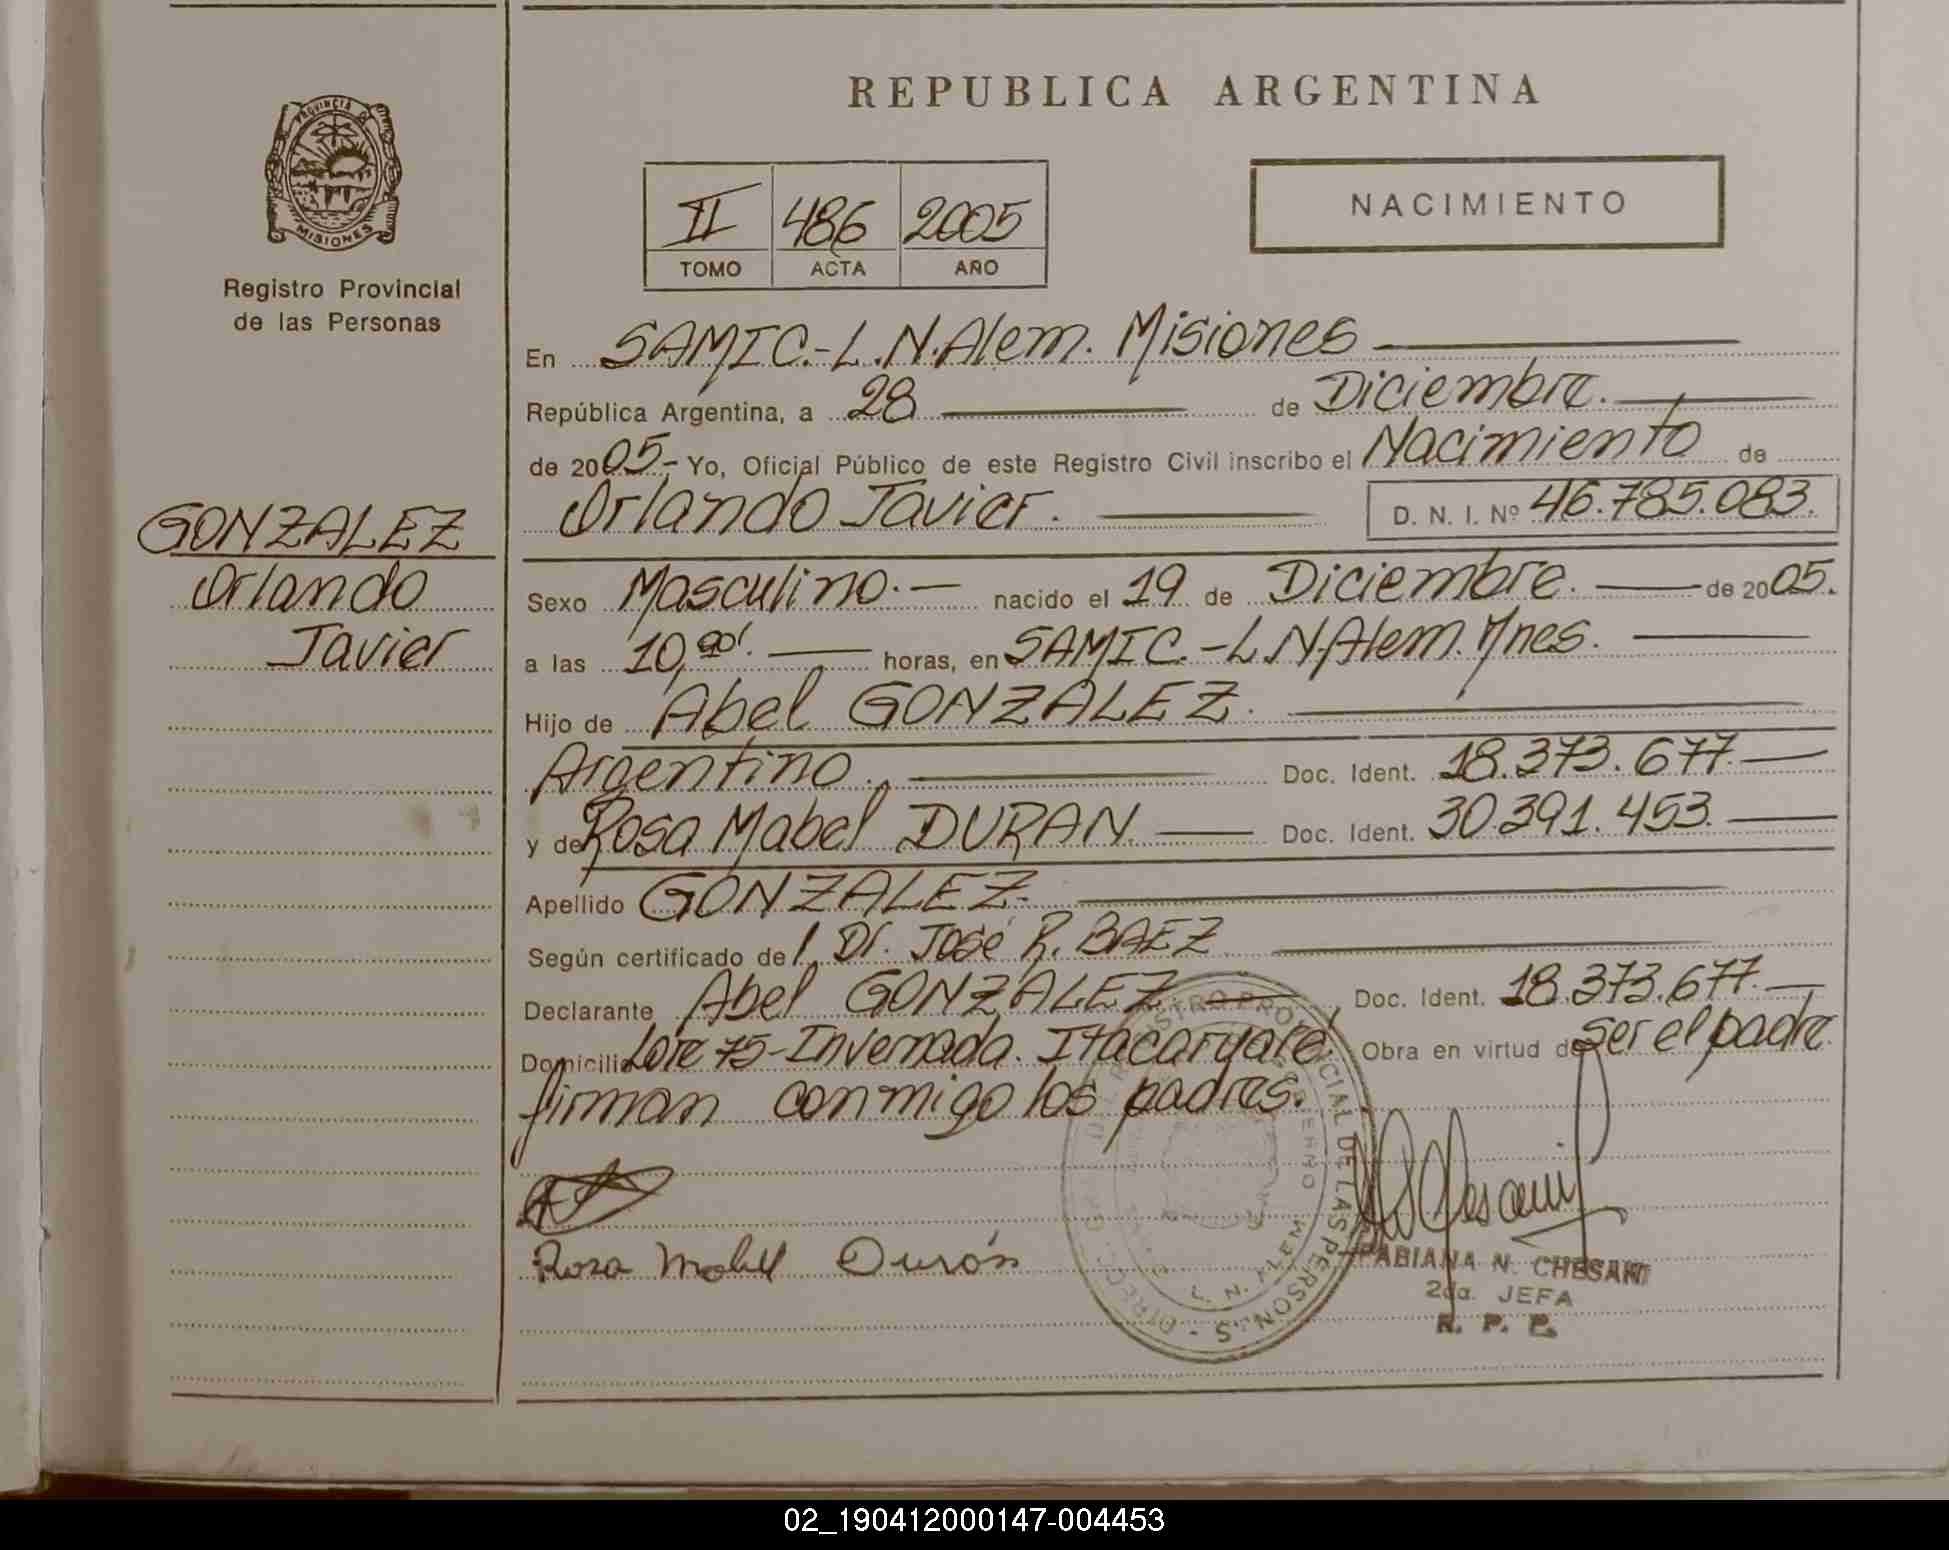 REPUBLICA ARGENTINA
PROVINCIA DE
MISIONES
Registro Provincial
de las Personas
II 486 2005
TOMO ACTA AÑO
NACIMIENTO
En SAMIC.-L.N.Alem. Misiones
República Argentina, a 28 de Diciembre.
de 2005.- Yo, Oficial Público de este Registro Civil inscribo el Nacimiento de
Orlando Javier. D. N. I. Nº 46.785.083.
GONZALEZ
Orlando
Javier
Sexo Masculino.- nacido el 19 de Diciembre. de 2005.
a las 10, horas, en SAMIC.-L.N.Alem. Mnes.
Hijo de Abel GONZALEZ.
Argentino. Doc. Ident. 18.373.677.
y de Rosa Mabel DURAN. Doc. Ident. 30.391.453.
Apellido GONZALEZ.
Según certificado del Dr. José R. BAEZ
Declarante Abel GONZALEZ Doc. Ident. 18.373.677.
Domicilio Lote 75-Invernada. Itacaruaré. Obra en virtud de ser el padre
firman conmigo los padres.
Rosa Mabel Durán
REGISTRO PROVINCIAL DE LAS PERSONAS
L. N. ALEM
FABIANA N. CHESANI
2da. JEFA
R. P. P.
02_190412000147-004453